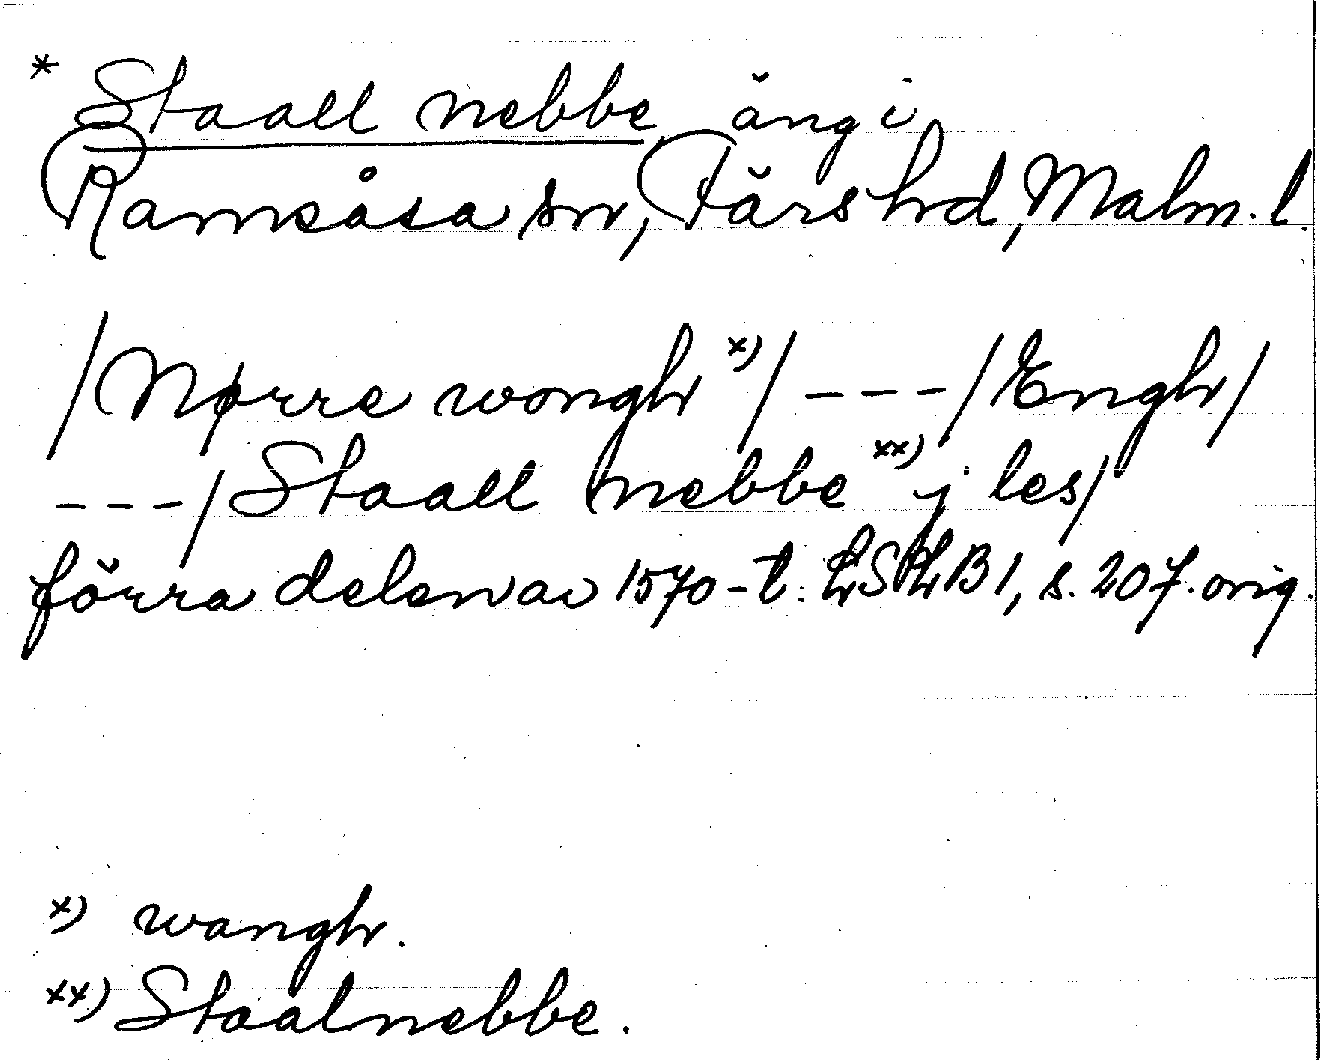 * Staall nebbe äng i
Ramsåsa sn, Färs hd, Malm. l.
/Nørre wongh x)/ - - - /Engh/
- - - /Staall nebbe xx) j les/
förra delen av 1570-t. LSLB 1, s. 207. orig.
x) wangh.
xx) Staalnebbe.